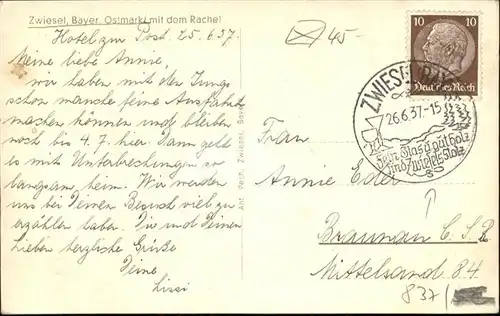 Zwiesel, Bayer. Ostmarkt mit dem Rachel
Hotel zur Post. 25.6.37.
Meine liebe Annie,
wir haben mit den Jungs
schon manche feine Ausfahrt
machen können und bleiben
noch bis 4.7. hier. Dann geht
es mit Unterbrechungen so
langsam heim. Wir werden
uns bei Deinem Besuch viel zu
erzählen haben. Dir und Deinen
Lieben herzliche Grüße
Deine
Lissi
45-
10 10
Deutsches Reich
ZWIESEL
26.6.37-15
Fein Glas gut Holz
sind Zwiesels Stolz
Frau
Annie
Braunau C.S.R.
Mittelsand 84
837/